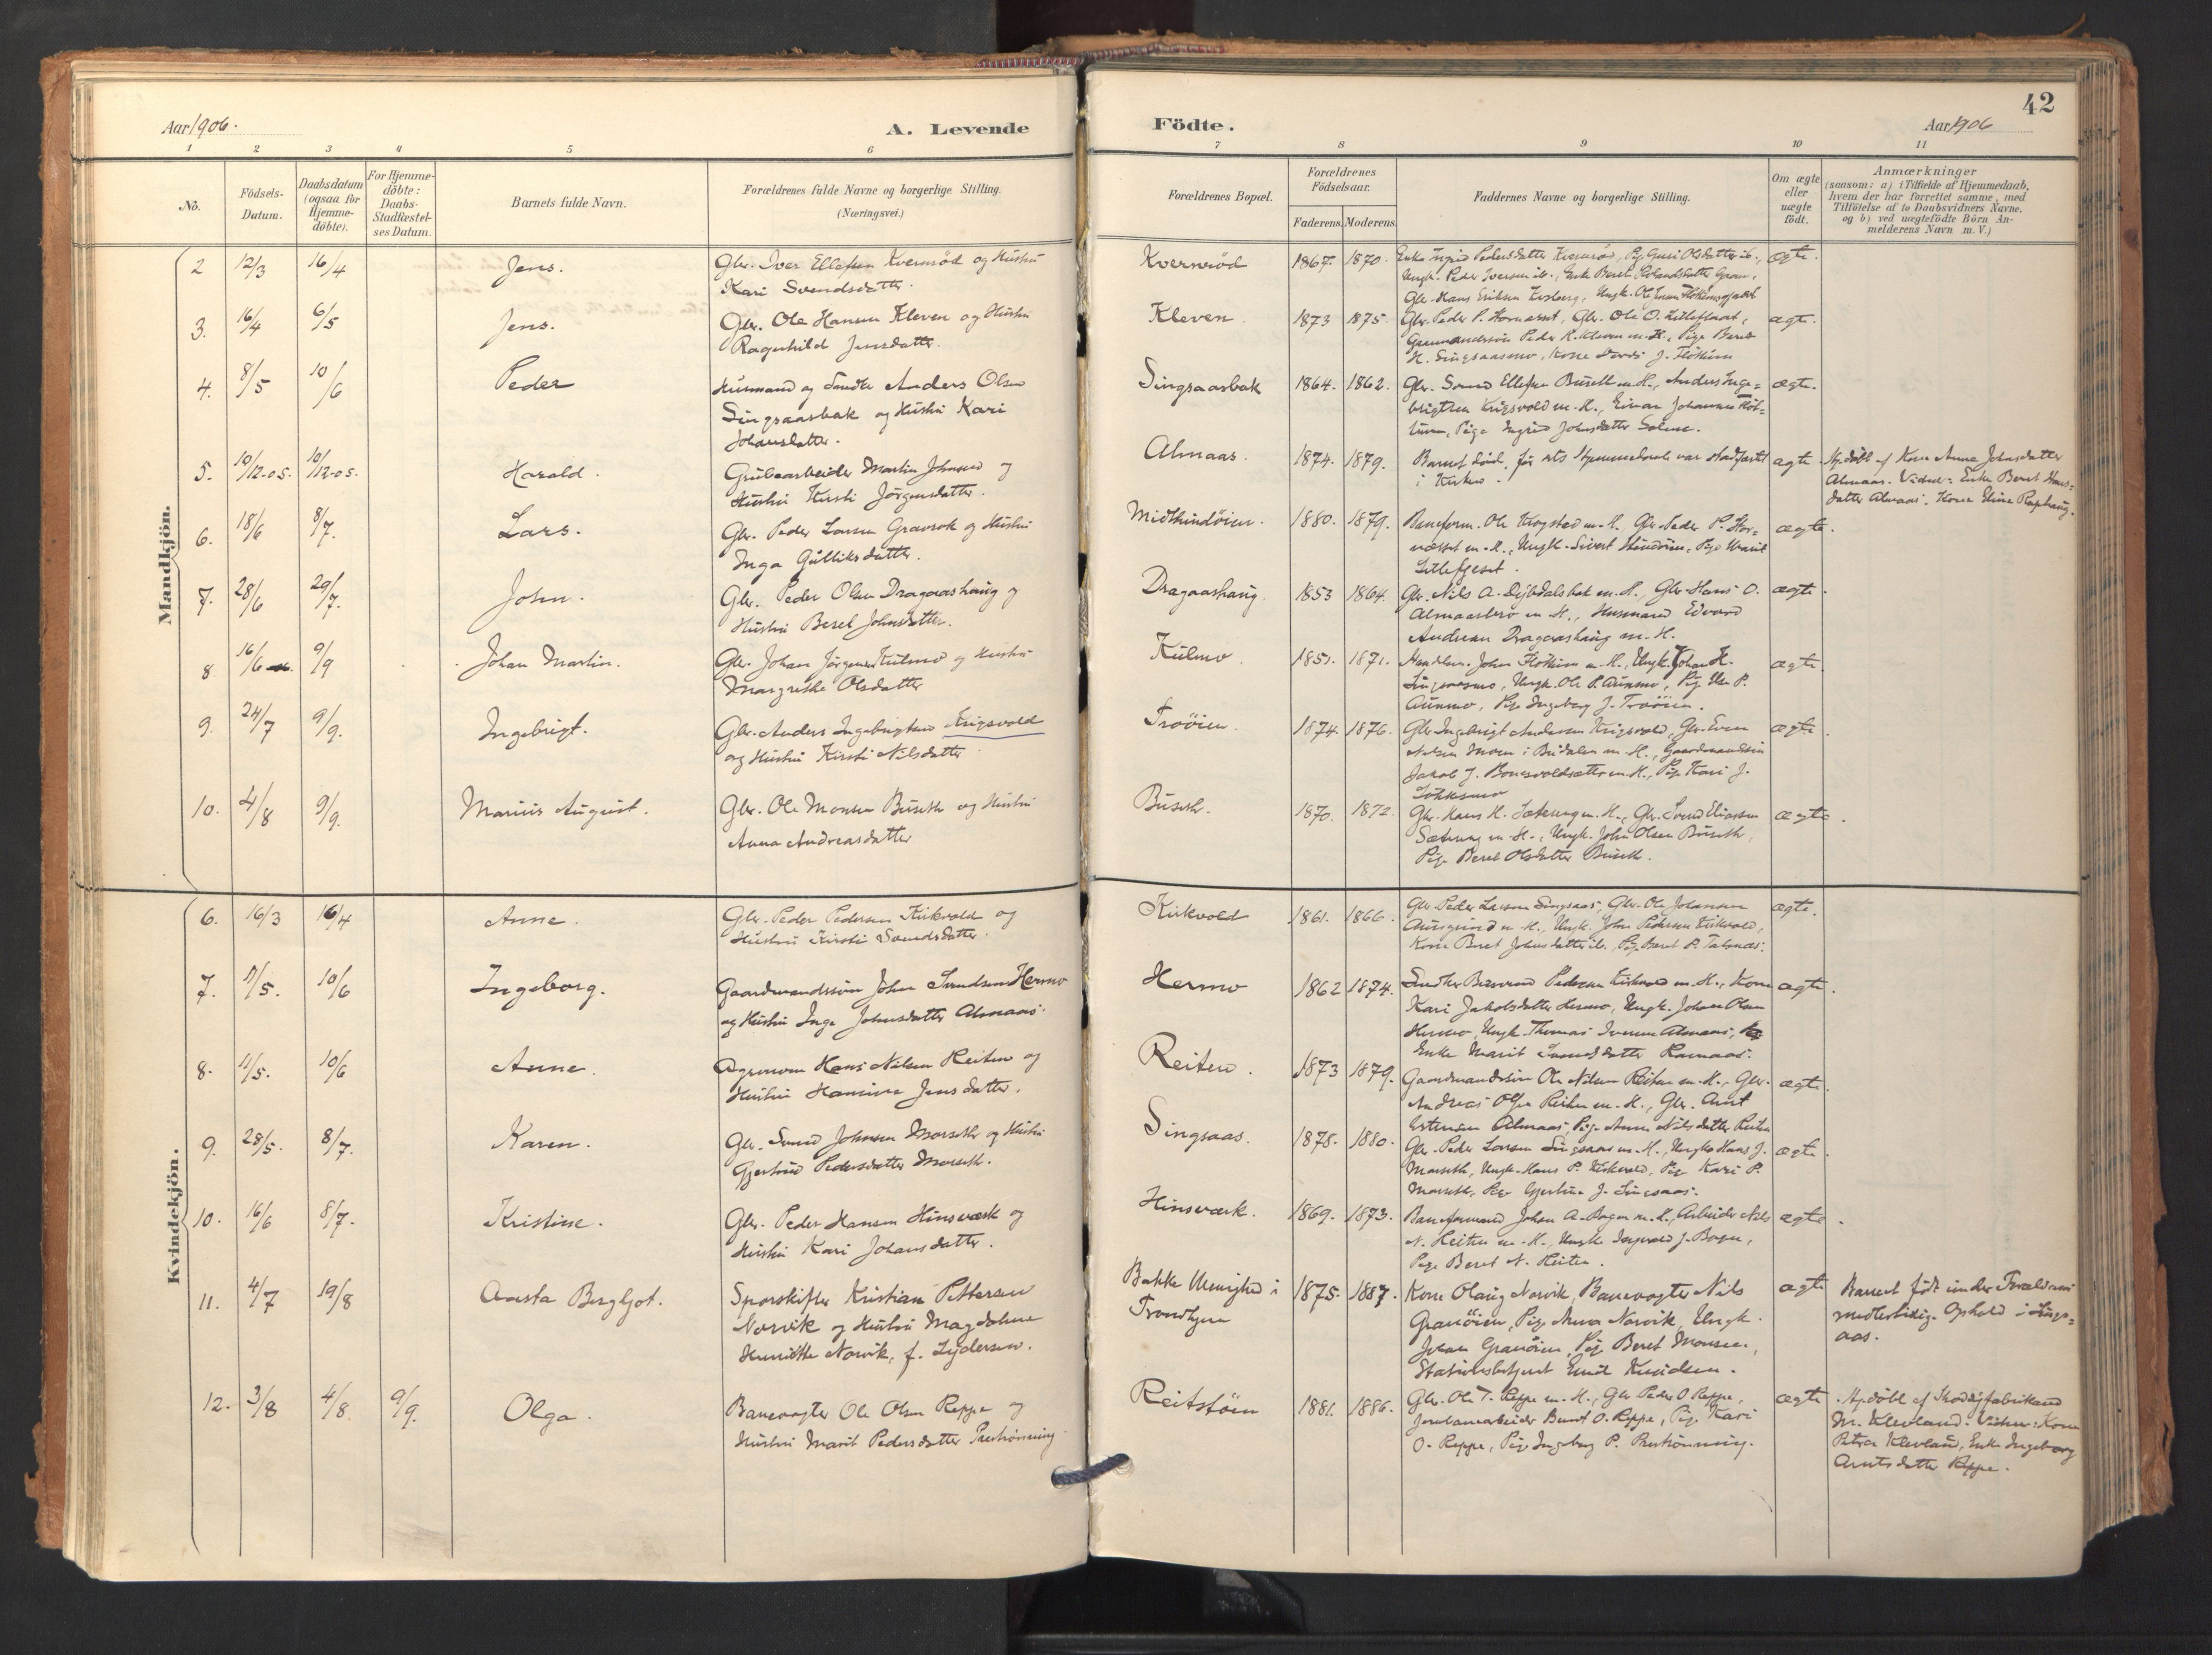 42
Aar 1906.
A. Levende
Födte.
Aar 1906
1 2 3 4 5 6 7 8 9 10 11
No.
Födsels-
Datum.
Daabsdatum
(ogsaa for
Hjemme-
döbte).
For Hjemme-
döbte:
Daabs-
Stadfæstel-
ses Datum.
Barnets fulde Navn.
Forældrenes fulde Navne og borgerlige Stilling.
(Næringsvei.)
Forældrenes Bopæl.
Forældrenes
Födselsaar.
Faderens. Moderens.
Faddernes Navne og borgerlige Stilling.
Om ægte
eller
uægte
født.
Anmærkninger
(saasom: a) i Tilfælde af Hjemmedaab,
hvem der har forrettet samme, med
Tilföielse af to Daabsvidners Navne.
og b) ved uægtefödte Börn An-
melderens Navn m. V.)
Mandkjön.
2 12/3 16/4 Jens.
Gbr. Iver Ellefsen Kvernröd og Hustru
Kari Svendsdatter.
Kvernröd 1867. 1870.
Enke Ingrid Pedersdatter Kvernröd, Pige Guri Olsdatter ib.,
Ungk. Peder Iversen ib., Enke Beret
Gbr. Hans Eriksen
ægte.
3. 16/4 6/5 Jens.
Gbr. Ole Hansen Kleven og Hustru
Ragnhild Jensdatter.
Kleven 1873 1875.
Gbr. Peder P. Storvæsset, Gbr. Ole O.
Gaardmandssön Peder K. Kleven m. H., Pige Beret
H. Singsaasmo, Kone J. Flötten
ægte.
4. 8/5 10/6 Peder
Husmand og Smed Anders Olsen
Singsaasbak og Hustru Kari
Johansdatter.
Singsaasbak 1864. 1862.
Gbr. Svend Ellefsen Buseth m. H., Anders Inge-
brigtsen Krigsvold m. H., Einar Johannes
Pige Ingrid Johnsdatter
ægte.
5. 10/12-05. 10/12-05. Harald.
Grubearbeider Martin Johnsen og
Hustru Kirsti Jörgensdatter.
Almaas. 1874. 1879.
Barnet död, før ets Hjemmedaab var stadfæstet
i Kirken.
ægte
Hj.döbt af Kone Anne Johnsdatter
Almaas. Vidner: Enke Beret Hans-
datter Almaas. Kone Eline
6. 18/6 8/7. Lars.
Gbr. Peder Larsen Gravrok og Hustru
Inga Gulliksdatter.
Midthindöien. 1880. 1879.
Baneform. Ole Krogstad m. H., Gbr. Peder P. Stor-
væsset m. H., Ungk. Sivert Hindöien, Pige Marit
ægte.
7. 28/6 29/7. John.
Gbr. Peder Olsen Dragaashaug og
Hustru Beret Johnsdatter.
Dragaashaug 1853 1864.
Gbr. Nils A. Dybdalsbak m. H., Gbr. Hans O.
Almaasbro m. H., Husmand Edvard
Andersen Dragaashaug m. H.
ægte.
8 16/6 9/9 Johan Martin.
Gbr. Johan Jörgensen Kulmo og Hustru
Margrethe Olsdatter
Kulmo. 1851. 1871.
John m. H., Ungk. Johan H.
Singsaasmo, Ungk. Ole P. Aunmo, Pige P.
Aunmo, Pige Ingeborg J. Troöien.
ægte.
9. 24/7 9/9. Ingebrigt.
Gbr. Anders Ingebrigtsen Krigsvold
og Hustru Kirsti Nilsdatter
Troöien. 1874. 1876.
Gbr. Ingebrigt Andersen Krigsvold, Gbr. Even
Nilsen Moen i Budalen m. H., Gaardmandssön
Jakob J. m. H., Pige Kari J.
ægte.
10. 4/8 9/9. Marius August.
Gbr. Ole Monsen Buseth og Hustru
Anna Andreasdatter
Buseth. 1870. 1872.
Gbr. Hans H. Sæterung m. H., Gbr. Svend Eliassen
Sæterung m. H., Ungk. John Olsen Buseth,
Pige Beret Olsdatter Buseth.
ægte.
Kvindekjön.
6. 16/3 16/4 Anne.
Gbr. Peder Pedersen Kirkvold og
Hustru Kirsti Svendsdatter.
Kirkvold 1861. 1866.
Gbr. Peder Larsen Singsaas, Gbr. Ole Johansen
m. H., Ungk. John Pedersen Kirkvold,
Kone Beret Johnsdatter ib., Pige Beret P. Talsnæs.
ægte.
7. 1/5. 10/6 Ingeborg.
Gaardmandssön John Svendsen Hermo
og Hustru Inge Johnsdatter Almaas.
Hermo 1862 1874.
Pedersen Kirkvold m. H., Kone
Kari Jakobsdatter Hermo, Ungk. Johan Olsen
Hermo, Ungk. Thomas Iversen Almaas,
Enke Marit Svendsdatter Ramaas.
ægte.
8. 11/5. 10/6 Anne.
Agronom Hans Nilsen Reiten og
Hustru Hansine Jensdatter.
Reiten. 1873 1879.
Gaardmandssön Ole Nilsen Reiten m. H., Gbr.
Andreas Olsen Reiten m. H., Gbr. Arnt
Estensen Almaas, Pige Anne Nilsdatter Reiten
ægte.
9. 28/5. 8/7. Karen.
Gbr. Svend Johnsen Morseth og Hustru
Gjertrud Pedersdatter Morseth.
Singsaas. 1875. 1880.
Gbr. Peder Larsen Singsaas m. H., Ungk. Hans J.
Morseth, Ungk. Hans P. Kirkvold, Pige Kari P.
Morseth, Pige Gjertrud J. Singsaas.
ægte.
10. 16/6 8/7. Kristine.
Gbr. Peder Hansen Hinsværk og
Hustru Kari Johansdatter.
Hinsværk. 1869. 1873.
Baneformand Johan A. Bogen m. H., Arbeider Nils
N. Reiten m. H., Ungk. Ingvald J. Bogen,
Pige Beret N. Reiten.
ægte.
11. 4/7 19/8 Aasta Bergljot.
Sporskifter Kristian Pettersen
Norvik og Hustru Magdalene
Henriette Norvik, f. Lydersen.
Bakke Menighed i
Trondhjem
1875. 1887.
Kone Olaug Norvik, Banevogter Nils
Granöien, Pige Anna Norvik, Ungk.
Johan Granöien, Pige Beret Monsen,
Stationsbetjent Emil Knudsen.
ægte
Barnet født under Forældrenes
midlertidige Ophold i Sings-
aas.
12. 3/8 4/8. 9/9. Olga.
Banevogter Ole Olsen Reppe og
Hustru Marit Pedersdatter Preströnning
Reitstöen 1881. 1886.
Gbr. Ole T. Reppe m. H., Gbr. Peder O. Reppe,
Jernbanearbeider Bernt O. Reppe, Pige Kari
O. Reppe, Pige Ingeborg P. Preströnning.
ægte
Hj.döbt af Skodöjfabrikand
M. Klevland. Vidner: Kone
Petra Klevland, Enke Ingeborg
Arntsdatter Reppe.